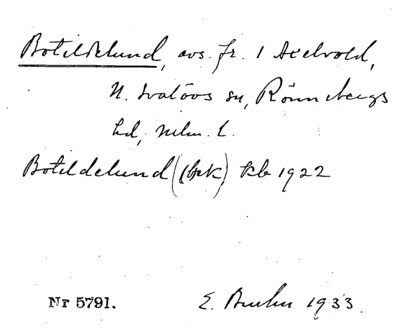 Botildelund, avs. fr. 1 Axelvold,
N. Svalövs sn, Rönnebergs
hd, Mlm. l.
Botildelund (1hk) kb 1922
Nr 5791.
E. 1933.